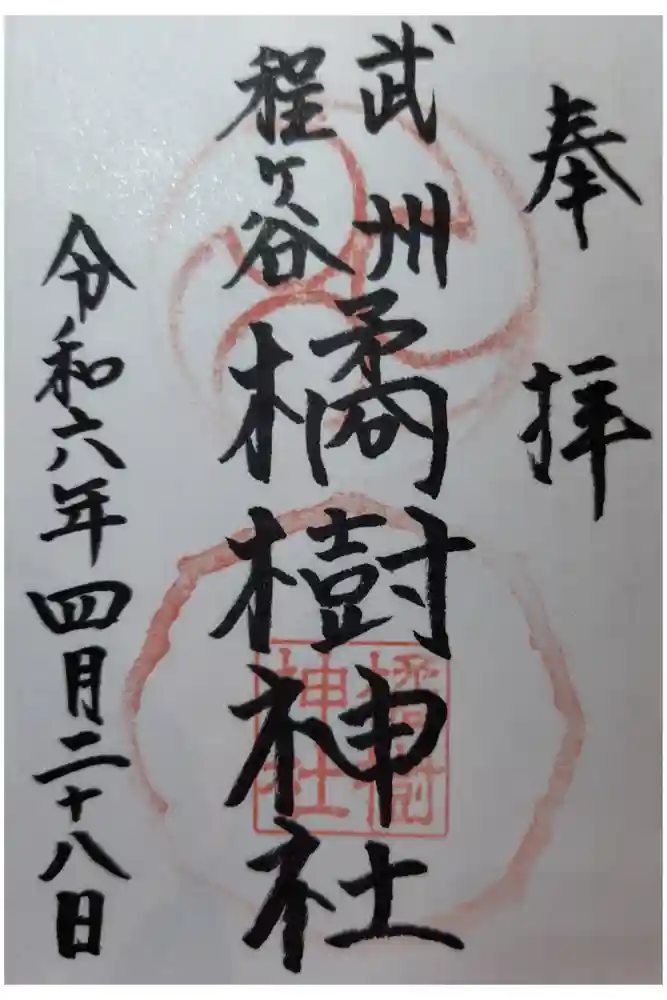 奉拝
武州
程ヶ谷
橘樹神社
橘樹
神社
令和六年四月二十八日